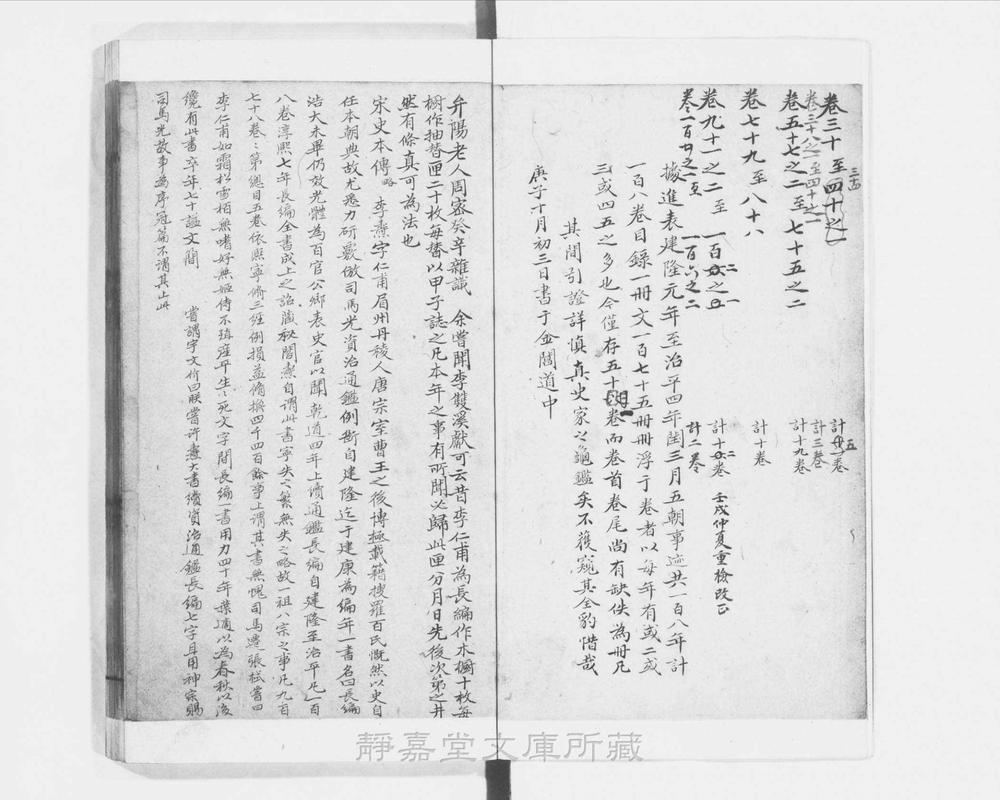 卷三十至四十之一
卷三十八之一至四十之一 計三卷
卷五十七之二至七十五之二 計十九卷
卷七十九至八十八 計十卷
卷九十一之二至一百
卷一百 之 至一百六之二 計二卷
壬戌仲夏重檢改正
據進表建隆元年至治平四年閏三月五朝事迹共一百八年計
一百八卷目錄一冊文一百七十五冊冊浮于卷者以每年有或二或
三或四五之多也今僅存五十 卷而卷首卷尾尚有缺佚為冊凡
其間引證詳慎真史家之龜鑑矣不獲窺其全豹惜哉
庚子十月初三日書于金閶道中
弁陽老人周密癸辛雜識 余嘗聞李雙溪獻可云昔李仁甫為長編作木櫥十枚每
櫥作抽替匣二十枚每替以甲子誌之凡本年之事有所聞必歸此匣分月日先後次第之井
然有條真可為法也
宋史本傳略 李燾字仁甫眉州丹稜人唐宗室曹王之後博極載籍搜羅百氏慨然以史自
任本朝典故尤悉力研覈倣司馬光資治通鑑例斷自建隆迄于建康為編年一書名曰長編
浩大未畢仍效光體為百官公卿表史官以聞乾道四年上續通鑑長編自建隆至治平凡一百
八卷淳熙七年長編全書成上之詔藏秘閣燾自謂此書寧失之繁無失之略故一祖八宗之事凡九百
七十八卷〻第總目五卷依熙寧脩三經例損益脩換四千四百餘事上謂其書無愧司馬遷張栻嘗曰
李仁甫如霜松雪栢無嗜好無姬侍不殖產平生〻死文字間長編一書用力四十年葉適以為春秋以後
纔有此書卒年七十謚文簡 嘗謂宇文价曰朕嘗許燾大書續資治通鑑長編七字且用神宗賜
司馬光故事為序冠篇不謂其止此
靜嘉堂文庫所藏